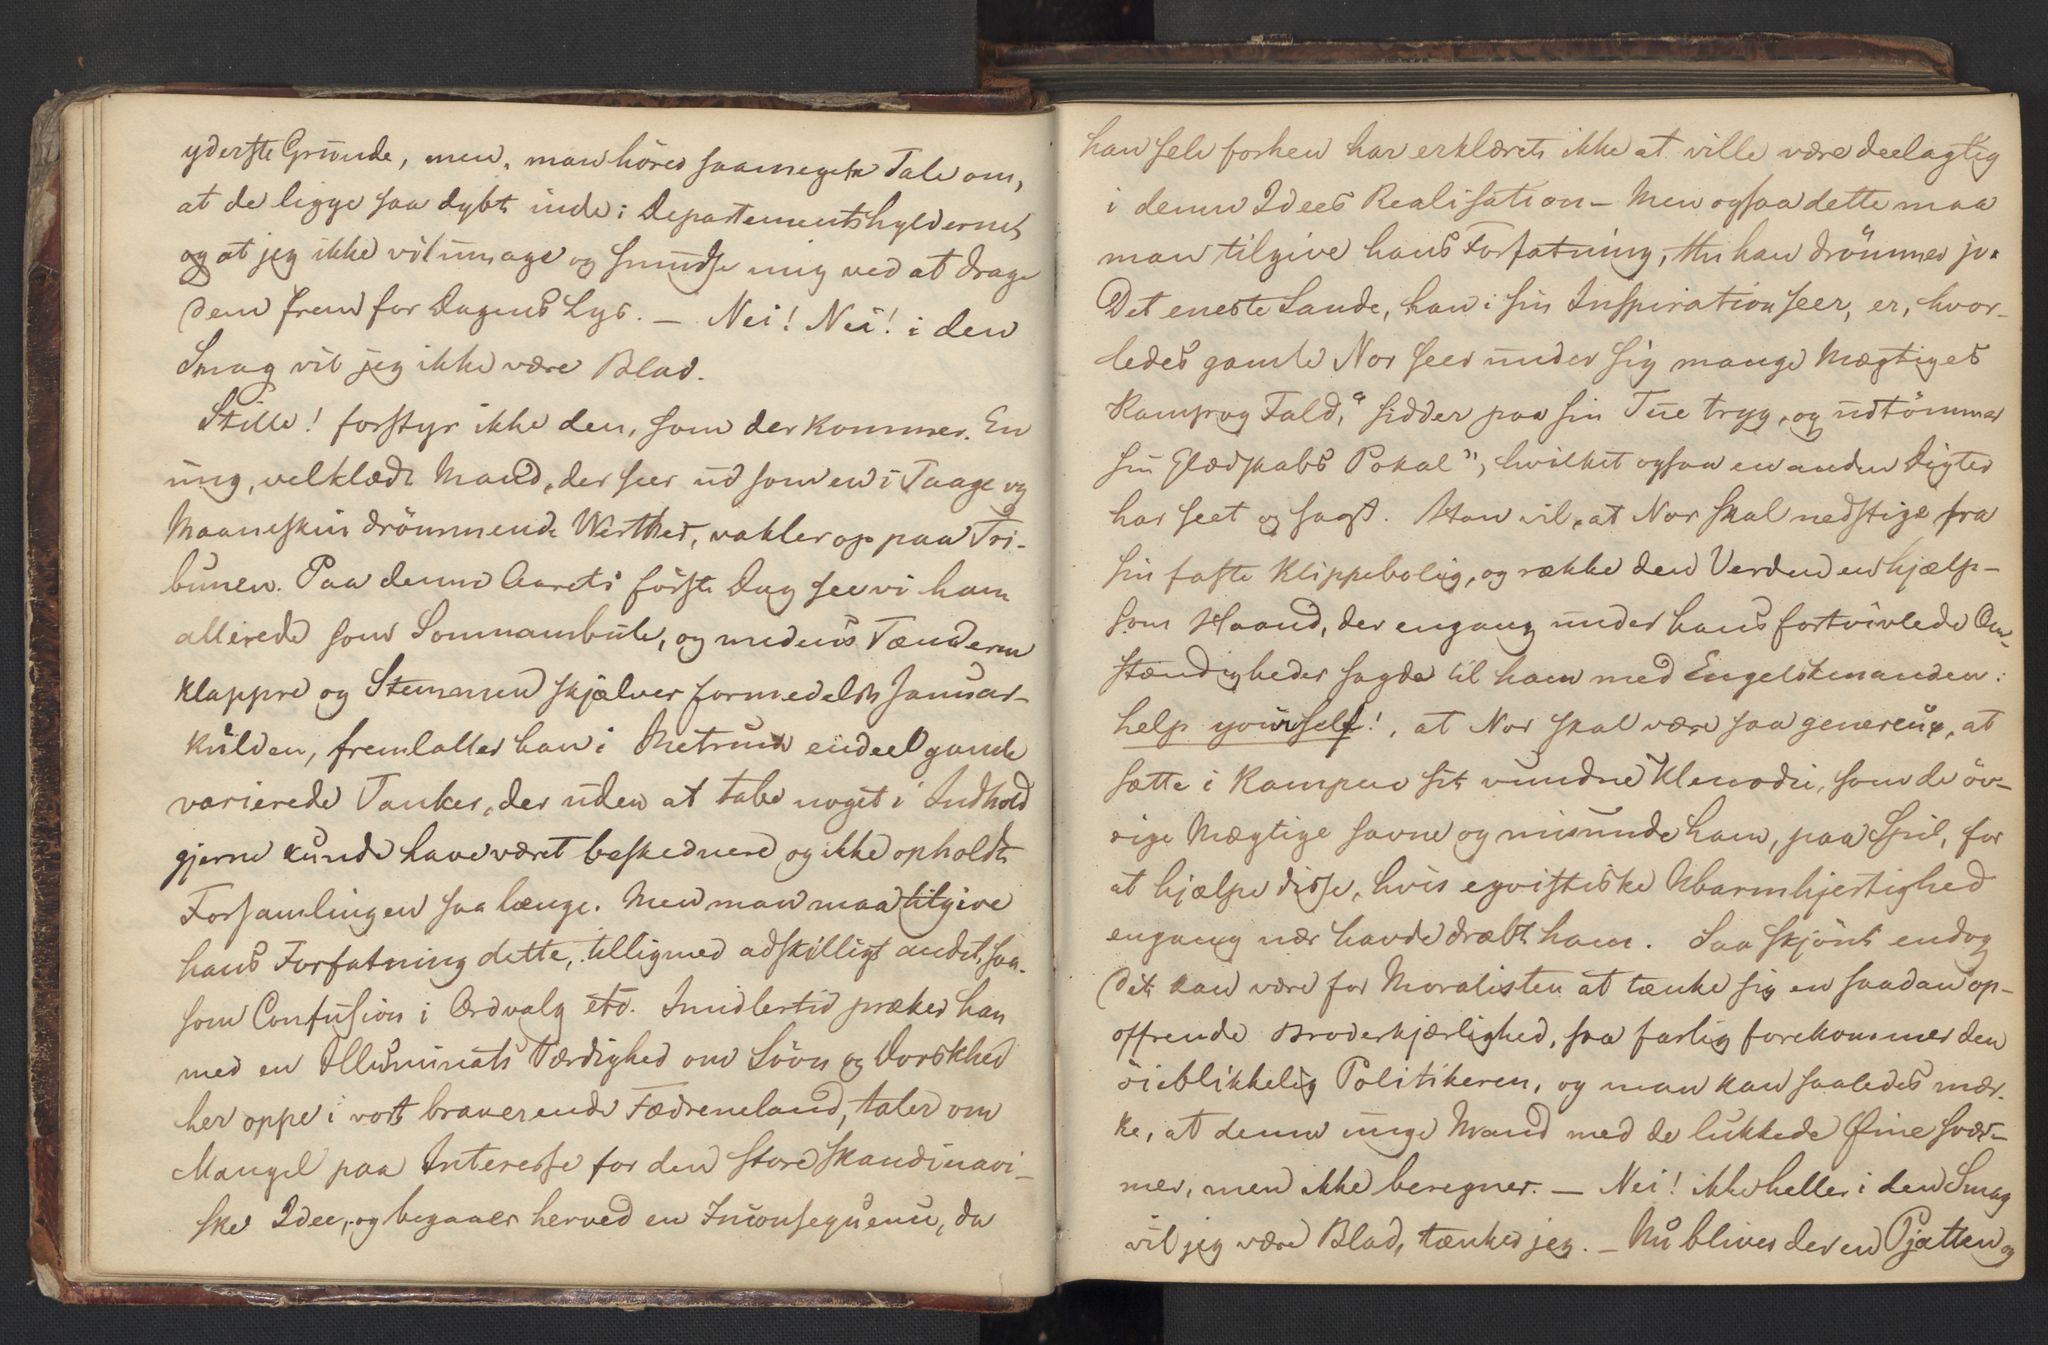 yderste Grunde, men, man hører saameget Tale om,
at de ligge saa dybt inde i Departementshylderne,
og at jeg ikke vil umage og smudse mig ved at drage
dem frem for Dagens Lys. — Nei! Nei! i den
Smag vil jeg ikke være Blad.
Stille! forstyr ikke den, som der kommer. En
ung, velklædt Mand, der seer ud som en i Taage og
Maaneskin drömmende Werther, vakler op paa Tri-
bunen. Paa denne Aarets förste Dag see vi ham
allerede som Somnambule, og medens Tænderne
klappre og Stemmen skjælver formedelst Januar-
kulden, fremlatter han i Metrum endeel gamle
varierede Tanker, der uden at tabe noget i Indhold
gjerne kunde have været beskednere og ikke opholdt
Forsamlingen saa længe. Men man maa tilgive
hans Forfatning dette, tilligmed adskilligt andet, saa-
som Confusion i Ordvalg etc. Imidlertid præker han
med en Illuminats Værdighed om Sövn og Dorskhed
her oppe i vort braverende Fædreneland, taler om
Mangel paa Interesse for den store skandinavi-
ske Idee, og begaaer herved en Inconsequens, da
han selv forhen har erklæret ikke at ville være deelagtig
i denne Idees Realisation — Men ogsaa dette maa
man tilgive hans Forfatning, thi han drömmer jo.
Det eneste Sande, han i sin Inspiration seer, er, hvor-
ledes gamle Nor seer under sig mange Mægtiges
Kamp og Fald, "sidder paa sin Tue tryg, og udtömmer
sin Glædskabs Pokal", hvilket ogsaa en anden Digter
har seet og sagt. Han vil, at Nor skal nedstige fra
sin faste Klippebolig, og række den Verden en hjælp-
som Haand, der engang under hans fortvivlede Om-
stændigheder sagde til ham med Engelskmanden:
help yourself!, at Nor skal være saa genereux, at
sætte i Kampen sit vundne Klenodie, som de öv-
rige Mægtige savne og misunde ham, paa Spil, for
at hjælpe disse, hvis egoistiske Ubarmhjertighed
engang nær havde dræbt ham. Saa skjönt endog
det kan være for Moralisten at tænke sig en saadan op-
offrende Broderkjærlighed, saa farlig forekommer den
öieblikkelig Politikeren, og man kan saaledes mær-
ke, at denne unge Mand med de lukkede Øine svær-
mer, men ikke beregner. — Nei! ikke heller i den Smag
vil jeg være Blad, tænker jeg. — Nu bliver der en Pjatten og